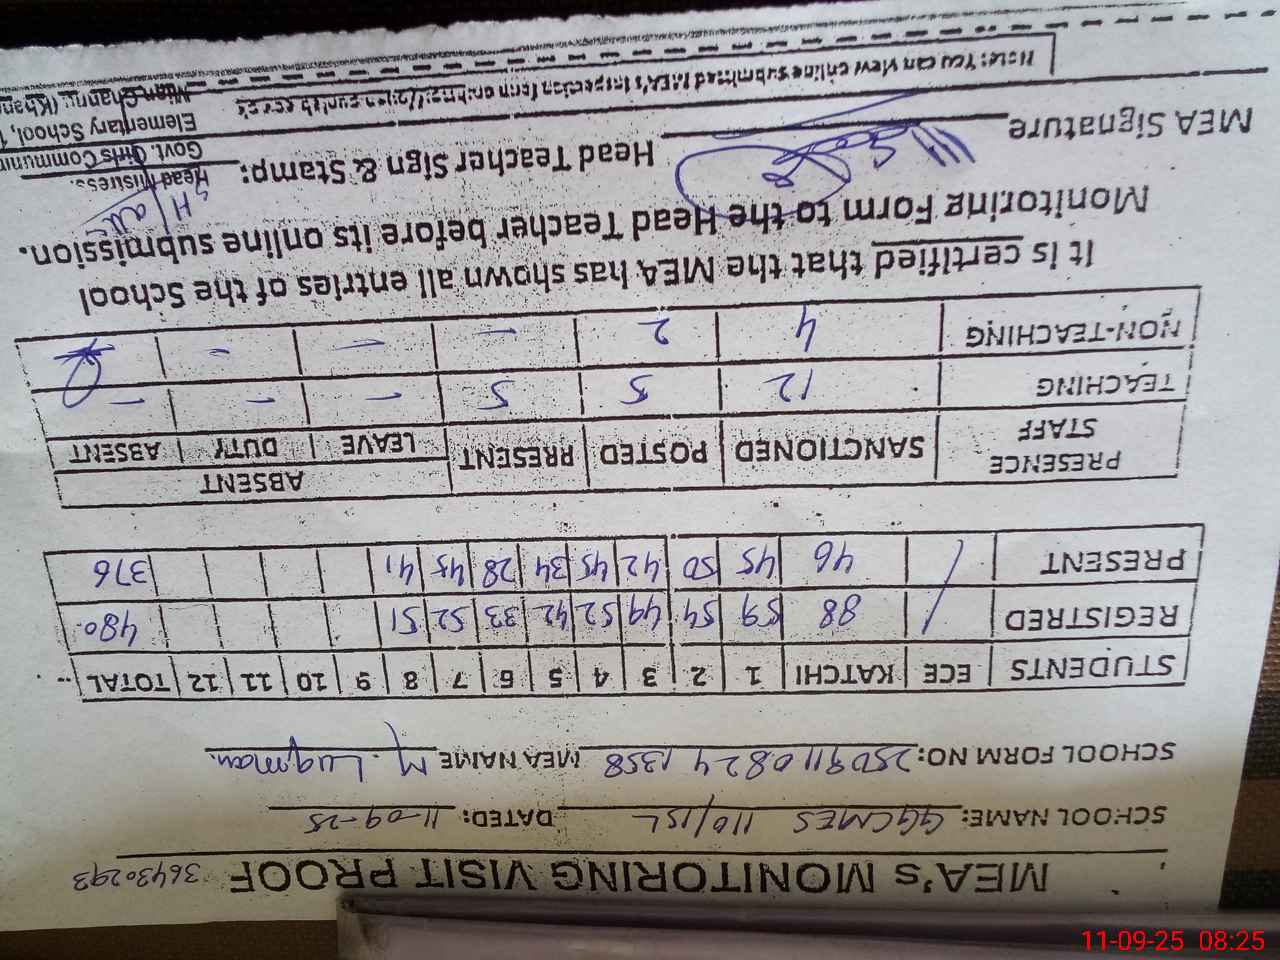 MEA's MONITORING VISIT PROOF 36430293
SCHOOL NAME: GGCMES 110/15L DATED: 11-09-25
SCHOOL FORM NO: 25091108241358 MEA NAME M. Luqman.
STUDENTS ECE KATCHI 1 2 3 4 5 6 7 8 9 10 11 12 TOTAL
REGISTRED / 88 59 54 49 52 42 33 52 51 480.
PRESENT / 46 45 50 42 45 34 28 45 41 376
PRESENCE STAFF SANCTIONED POSTED PRESENT ABSENT
LEAVE DUTY ABSENT
TEACHING 12 5 5 – – –
NON-TEACHING 4 2 – – –
It is certified that the MEA has shown all entries of the School
Monitoring Form to the Head Teacher before its online submission.
MEA Signature Head Teacher Sign & Stamp:
Head Mistress.
Govt. Girls
Elementary School,
Mian Channu
Note: You can view online submitted MEA's inspection form on
11-09-25 08:25